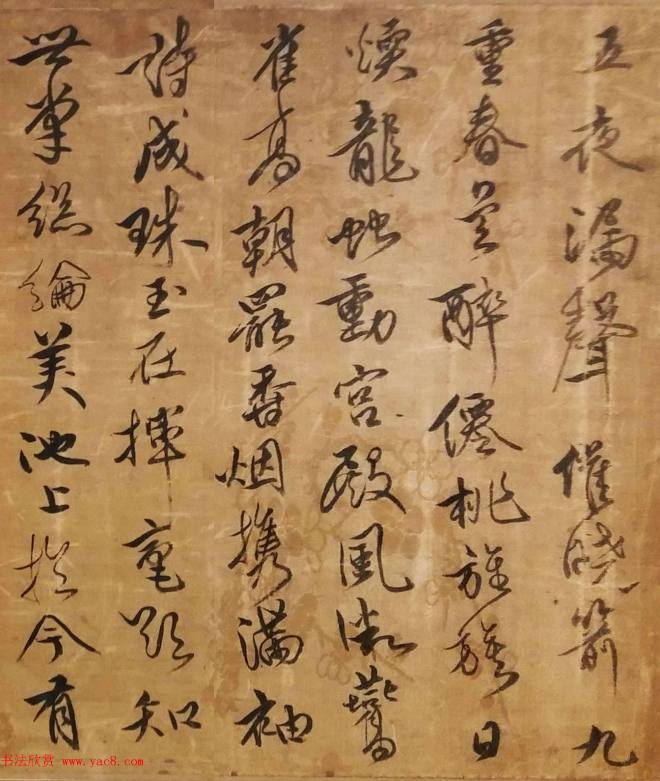 五夜漏聲催曉箭九
重春色醉僊桃旌旗日
煖龍蛇動宮殿風微鷰
雀高朝罷香烟携滿袖
詩成珠玉在揮毫欲知
世掌絲綸美池上於今有
书法欣赏 www.yac8.com